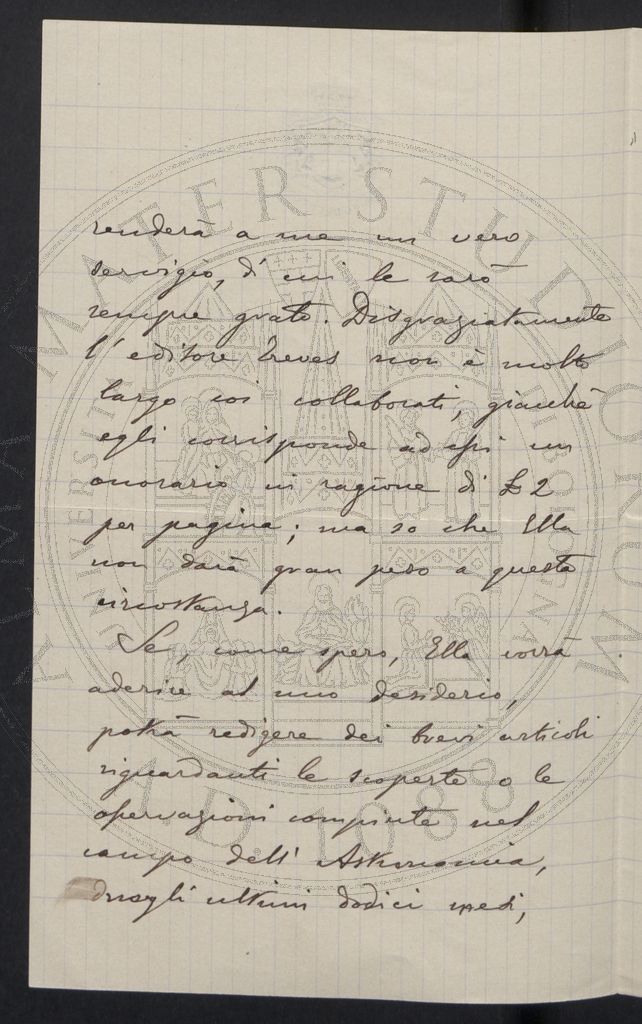 renderà a me un vero
servigio, di cui le sarò
sempre grato. Disgraziatamente
l'editore Treves non è molto
largo coi collaborati, giacchè
egli corrisponde ad essi un
onorario in ragione di £ 2
per pagina; ma so che Ella
non darà gran peso a questa
circostanza.
Se, come spero, Ella vorrà
aderire al mio desiderio,
potrà redigere dei brevi articoli
riguardanti le scoperte o le
osservazioni compiute nel
campo dell'Astronomia,
negli ultimi dodici mesi,
ALMA MATER STUDIORUM
A.D. 1088